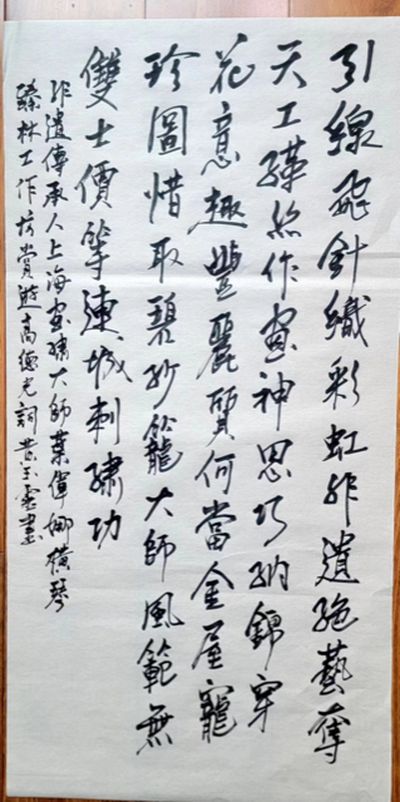 引線飛針織彩虹非遺絕藝奪
天工緙絲作畫神思巧納錦穿
花意趣豐麗質何當金屋寵
珍圖惜取碧紗籠大師風範無
雙士價擎連城刺繡功
非遺傳承人上海畫繡大師葉偉娜橫琴
臻林工作坊賞遊高德光詞黃玉雲書